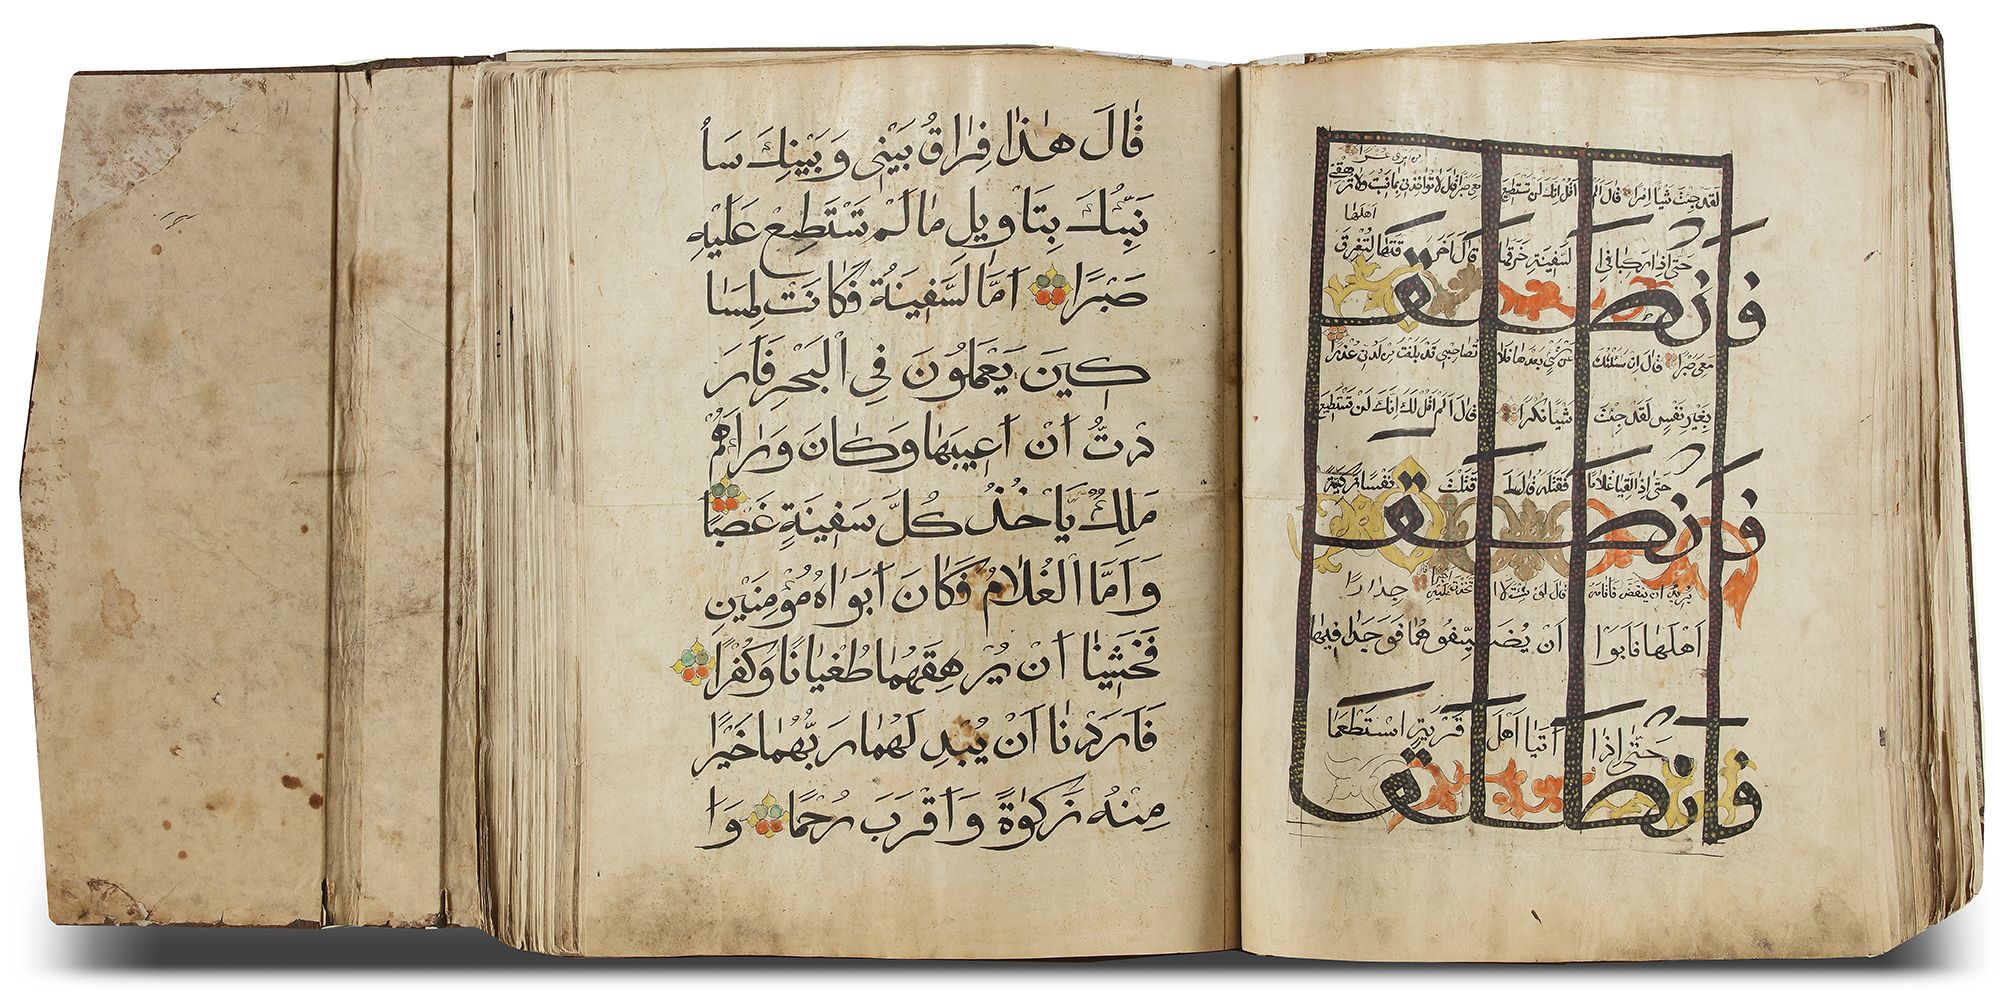 من امرى عسرا
لقد جئت شيا امرا قال الم اقل انك لن تستطيع معى صبرا قال لا تواخذنى بما نسيت ولا ترهقنى
اهلها
حتى اذا ركبا فى السفينة خرقها قال اخرقتها لتغرق
فانطلقا
معى صبرا قال ان سئلتك عن شى بعدها فلا تصاحبنى قد بلغت من لدنى عذرا
بغير نفس لقد جئت شيا نكرا قال الم اقل لك انك لن تستطيع
حتى اذا لقيا غلاما فقتله قال اقتلت نفسا زكية
فانطلقا
يريد ان ينقض فاقامه قال لو شئت لا تخذت عليه اجرا جدارا
اهلها فابوا ان يضيفوهما فوجدا فيها
حتى اذا اتيا اهل قرية استطعما
فانطلقا
قَالَ هٰذَا فِرَاقُ بَيْنِى وَبَيْنِكَ سَأُ
نَبِّئُكَ بِتَاوِيلِ مَا لَمْ تَسْتَطِعْ عَلَيْهِ
صَبْرًا اَمَّا السَّفِينَةُ فَكَانَتْ لِمَسَا
كِينَ يَعْمَلُونَ فِى الْبَحْرِ فَاَرَ
دْتُّ اَنْ اَعِيبَهَا وَكَانَ وَرَاءَهُمْ
مَلِكٌ يَاْخُذُ كُلَّ سَفِينَةٍ غَصْبًا
وَاَمَّا الْغُلَامُ فَكَانَ اَبَوَاهُ مُؤْمِنَيْنِ
فَخَشِينَا اَنْ يُرْهِقَهُمَا طُغْيَانًا وَكُفْرًا
فَاَرَدْنَا اَنْ يُبْدِلَهُمَا رَبُّهُمَا خَيْرًا
مِنْهُ زَكٰوةً وَاَقْرَبَ رُحْمًا وَاَ